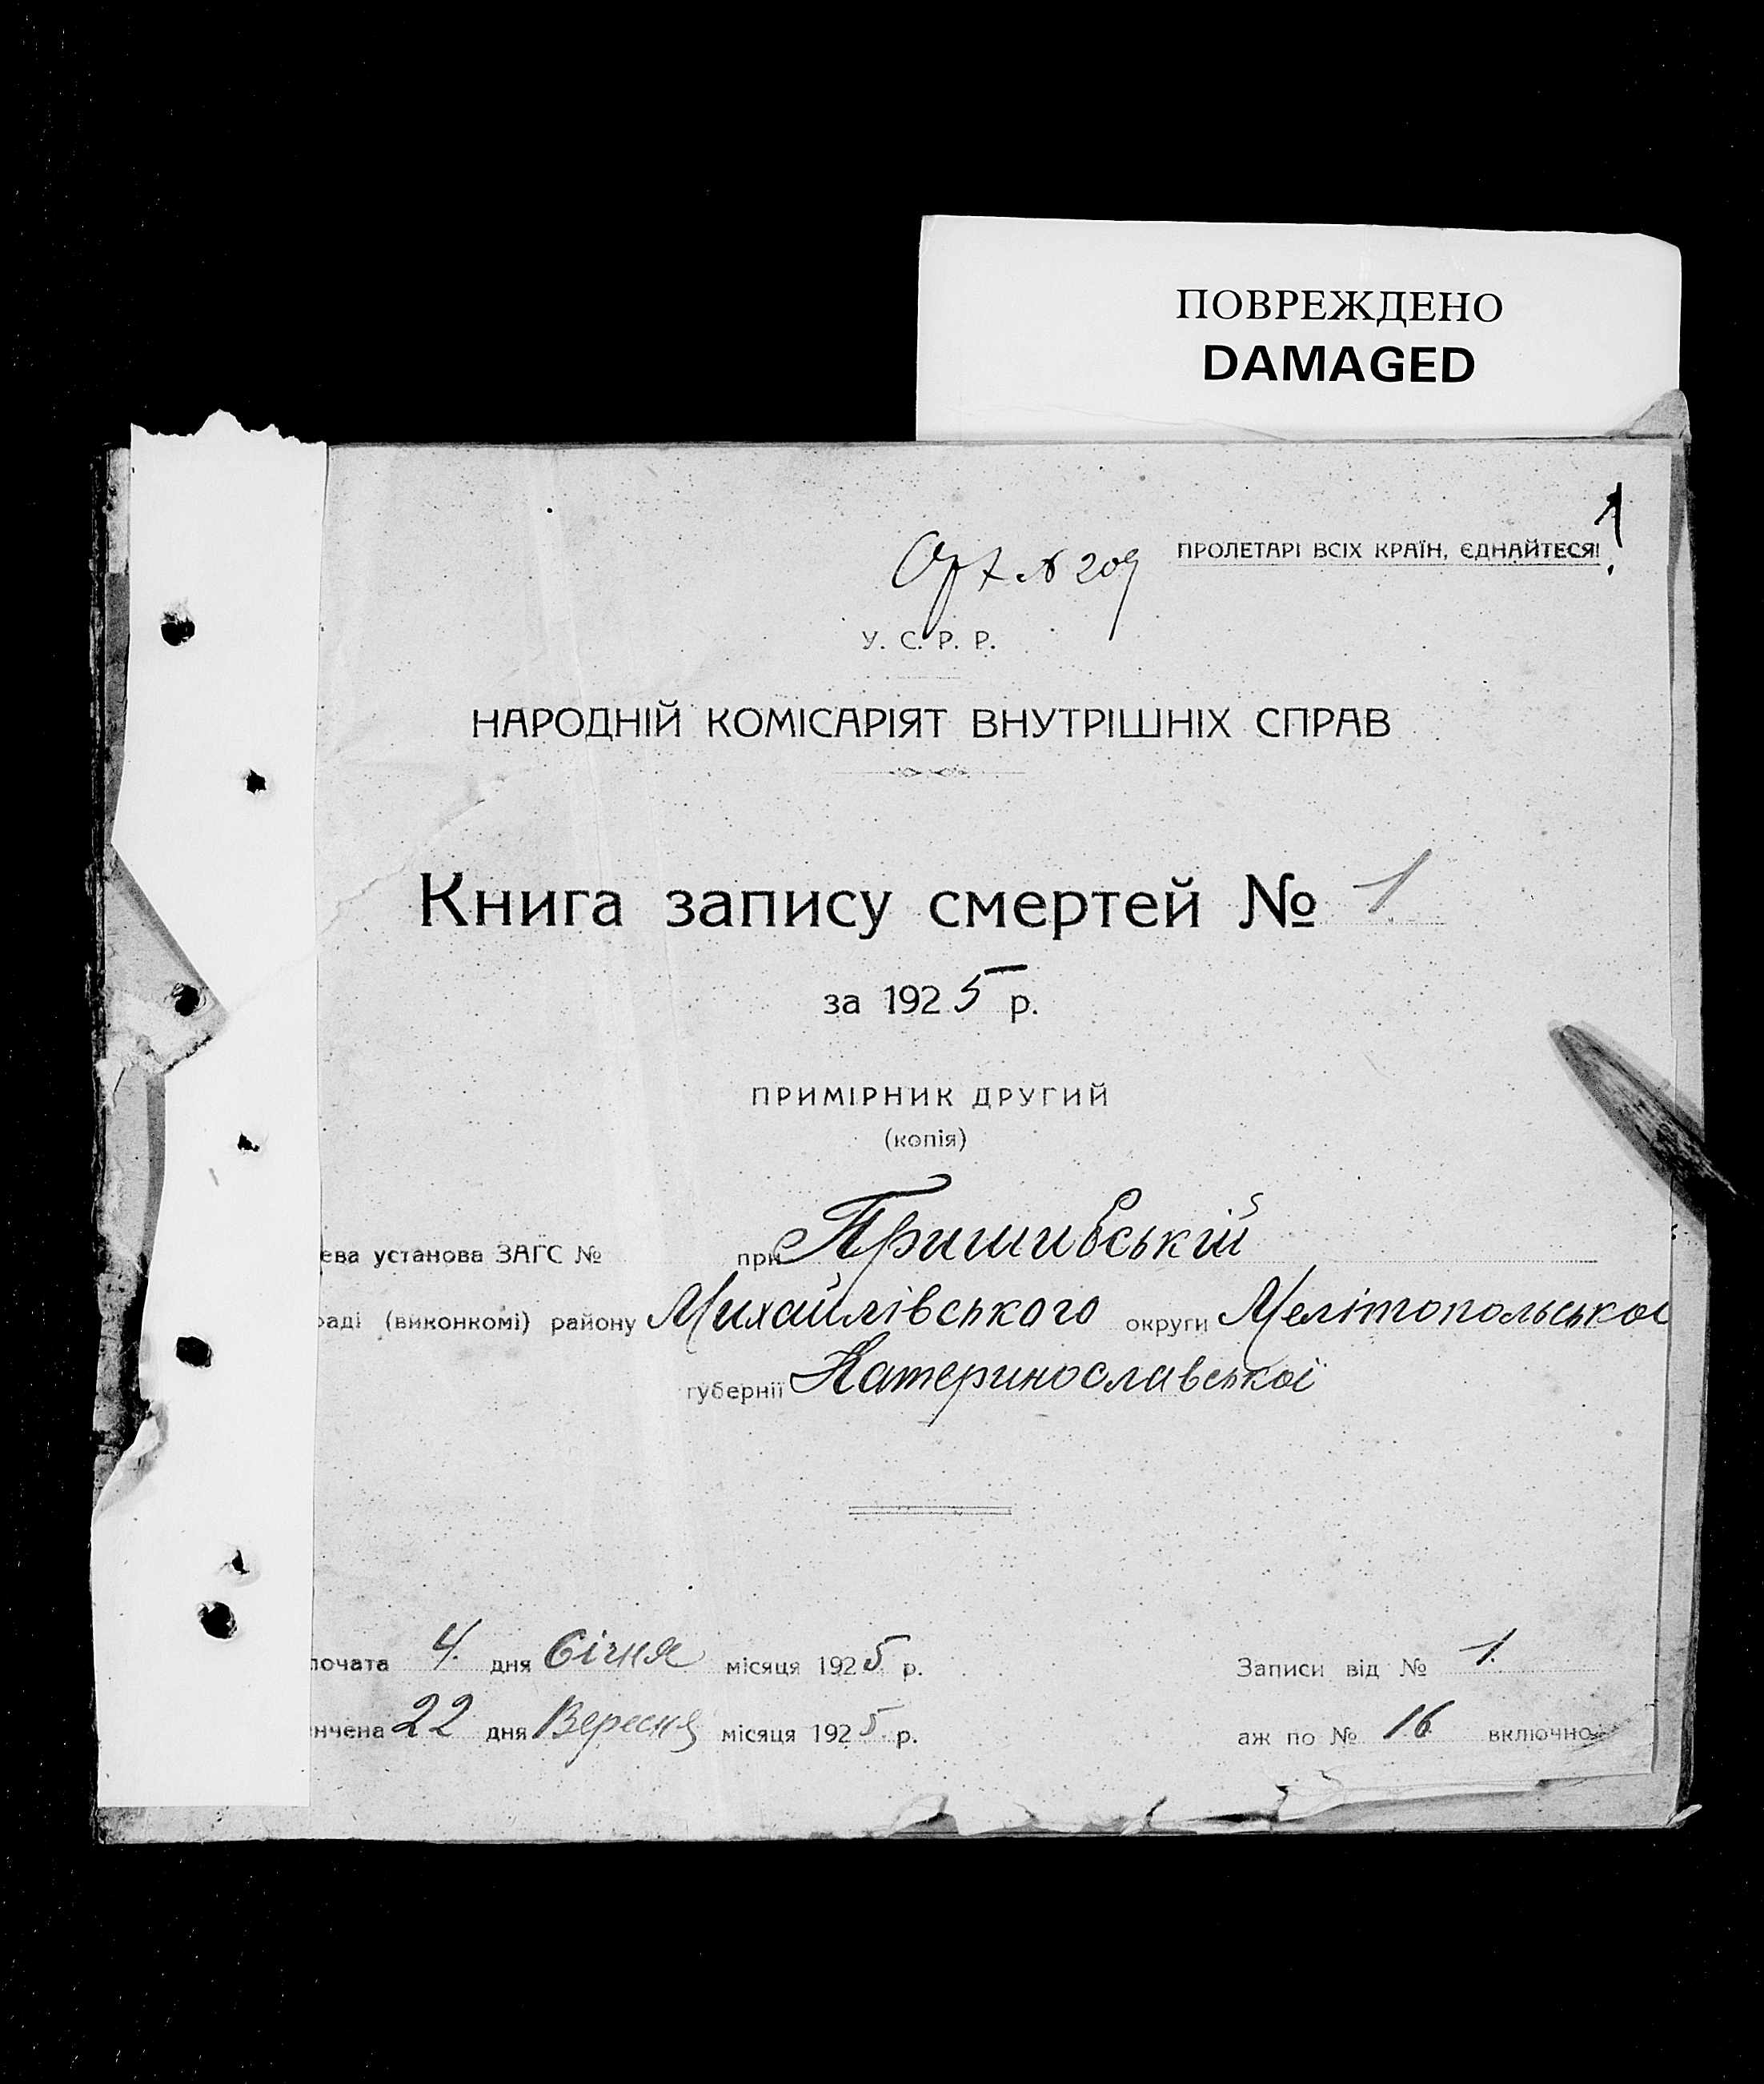 ПОВРЕЖДЕНО
DAMAGED
1
Арх № 209
ПРОЛЕТАРІ ВСІХ КРАЇН, ЄДНАЙТЕСЯ!
У. С. Р. Р.
НАРОДНІЙ КОМІСАРІЯТ ВНУТРІШНІХ СПРАВ
Книга запису смертей № 1
за 1925 р.
ПРИМІРНИК ДРУГИЙ
(копія)
ева установа ЗАГС № при Пришибській
раді (виконкомі) району Михайлівського округи Мелітопольської
губернії Катеринославської
почата 4. дня Січня місяця 1925 р. Записи від № 1.
нчена 22 дня Вересня місяця 1925 р. аж по № 16 включно